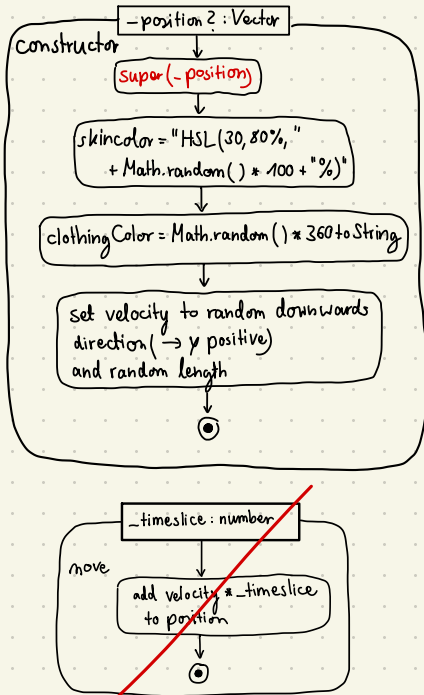 _position? : Vector
constructor
super(_position)
skincolor = "HSL(30, 80%, "
+ Math.random() * 100 + "%)"
clothingColor = Math.random() * 360 toString
set velocity to random downwards
direction (→ y positive)
and random length
_timeslice : number
move
add velocity * _timeslice
to position